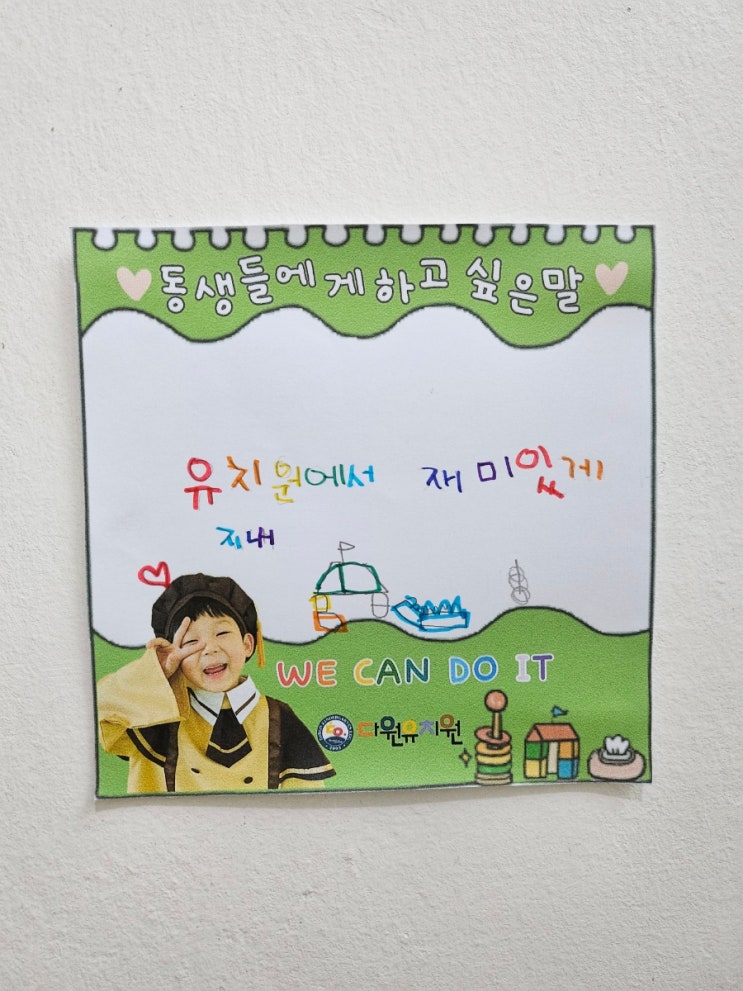 동생들에게하고 싶은말
유치원에서 재미있게
지내
WE CAN DO IT
다원유치원